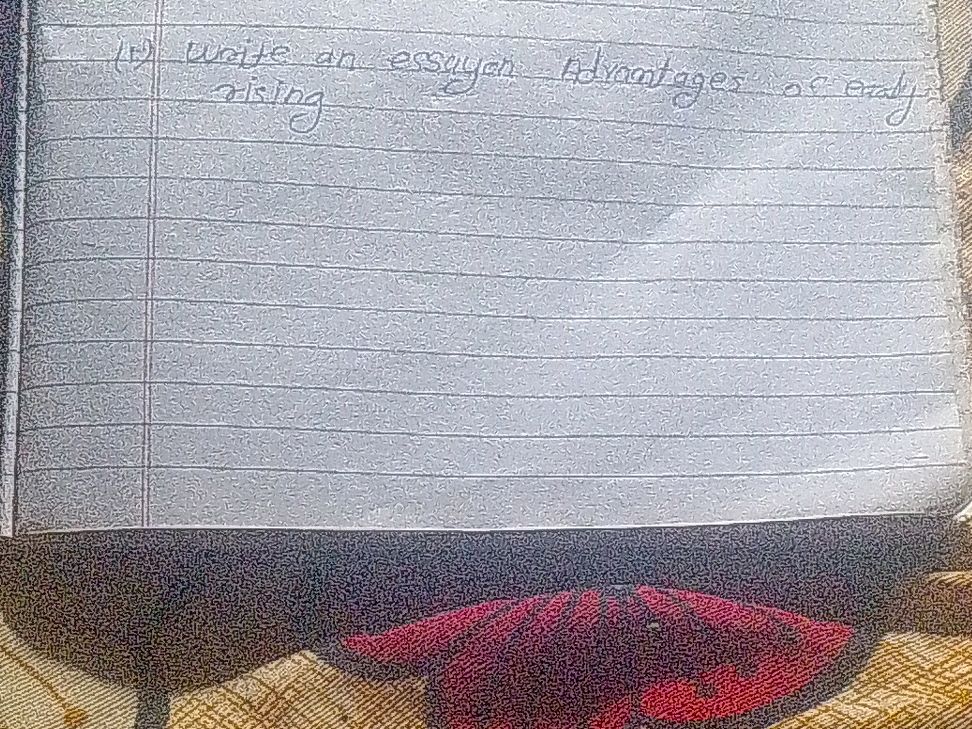 (1) write an essay on Advantages of early
rising